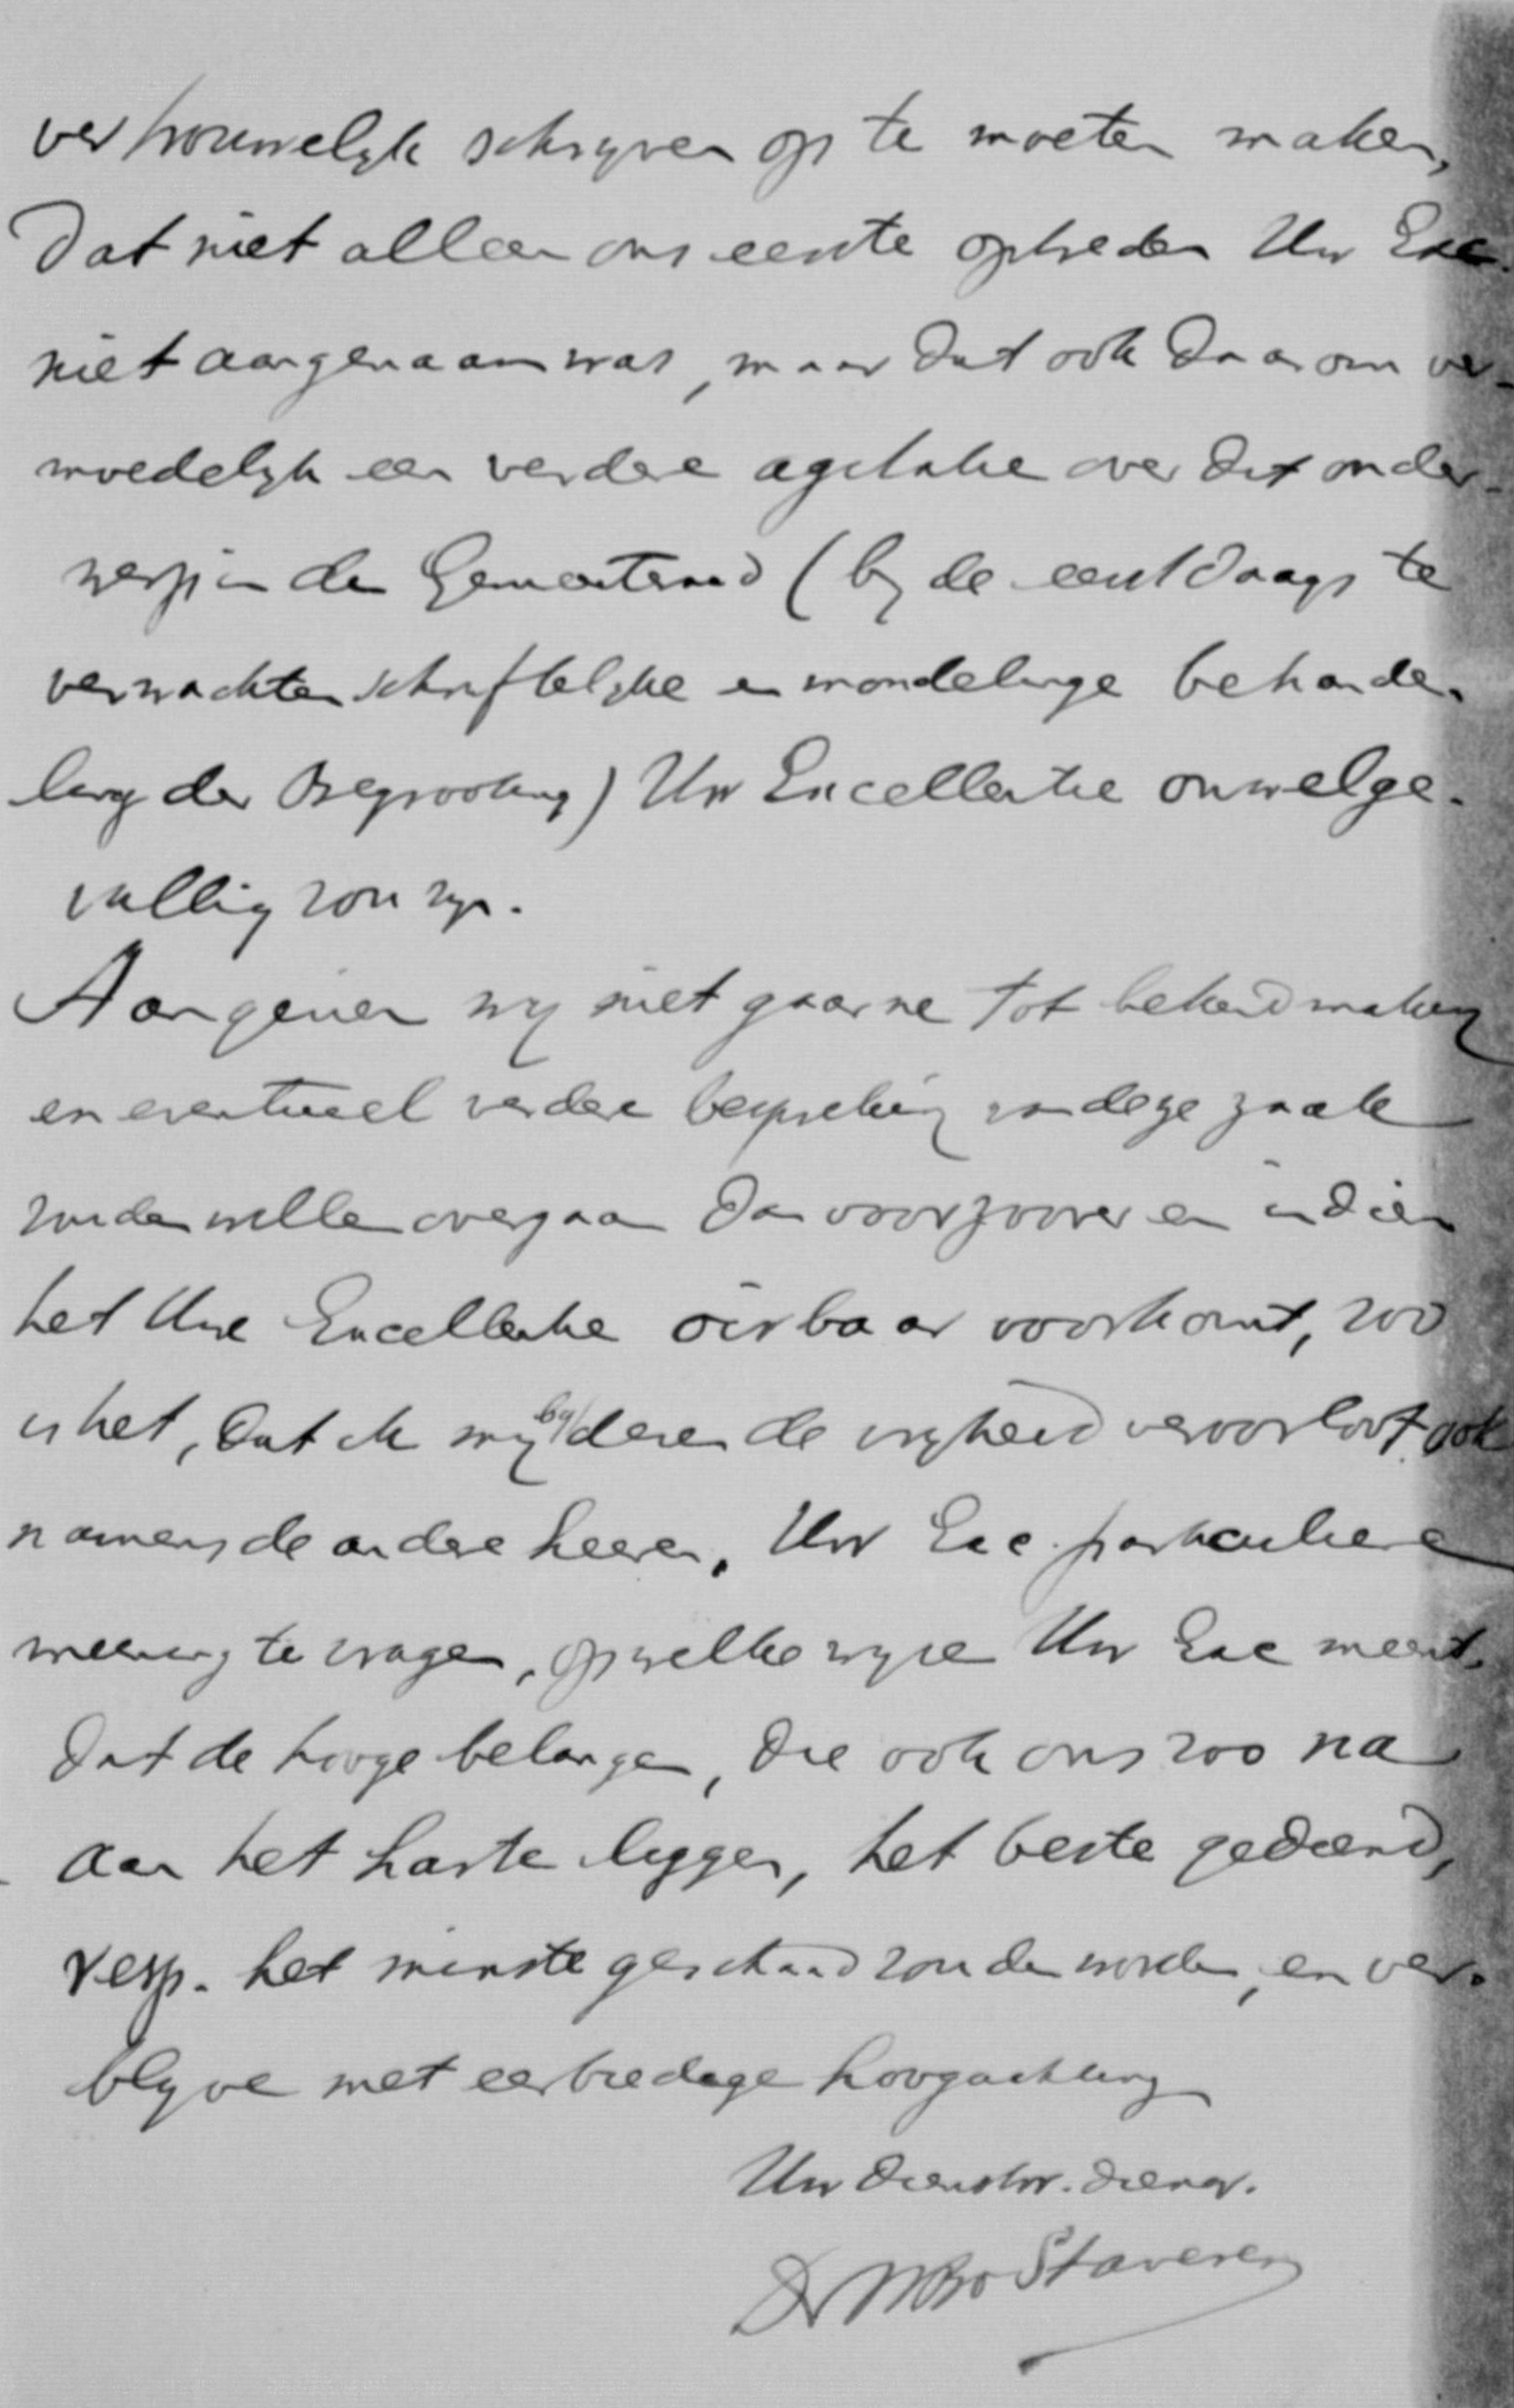 vertrouwelyk schryven op te moeten maken,
dat niet alleen ons eerste optreden Uw Exc.
niet aangenaam was, maar dat ook daarom ver-
moedelyk een verdere agitatie over dit onder-
werp in den Gemeenteraad (by de eerstdaags te
verwachten schriftelyke en mondelinge behande-
ling der Begrooting) Uw Excellentie onwelge-
vallig zou zyn.
Aangezien wy niet gaarne tot bekendmaking
en eventueel verdere bespreking van deze zaak
zouden willen overgaan dan voorzoover en indien
het Uwe Excellentie oirbaar voorkomt, zoo
is het, dat ik my by dezen de vryheid veroorloof ook
namens de andere heeren, Uw Exc. particuliere
meening te vragen, op welke wyze Uw Exc meent,
dat de hooge belangen, die ook ons zoo na
aan het harte liggen, het beste gediend,
resp. het minste geschaad zouden worden, en ver-
blyve met eerbiedige hoogachting
Uw dienstw. dienar.
Dr v Staveren